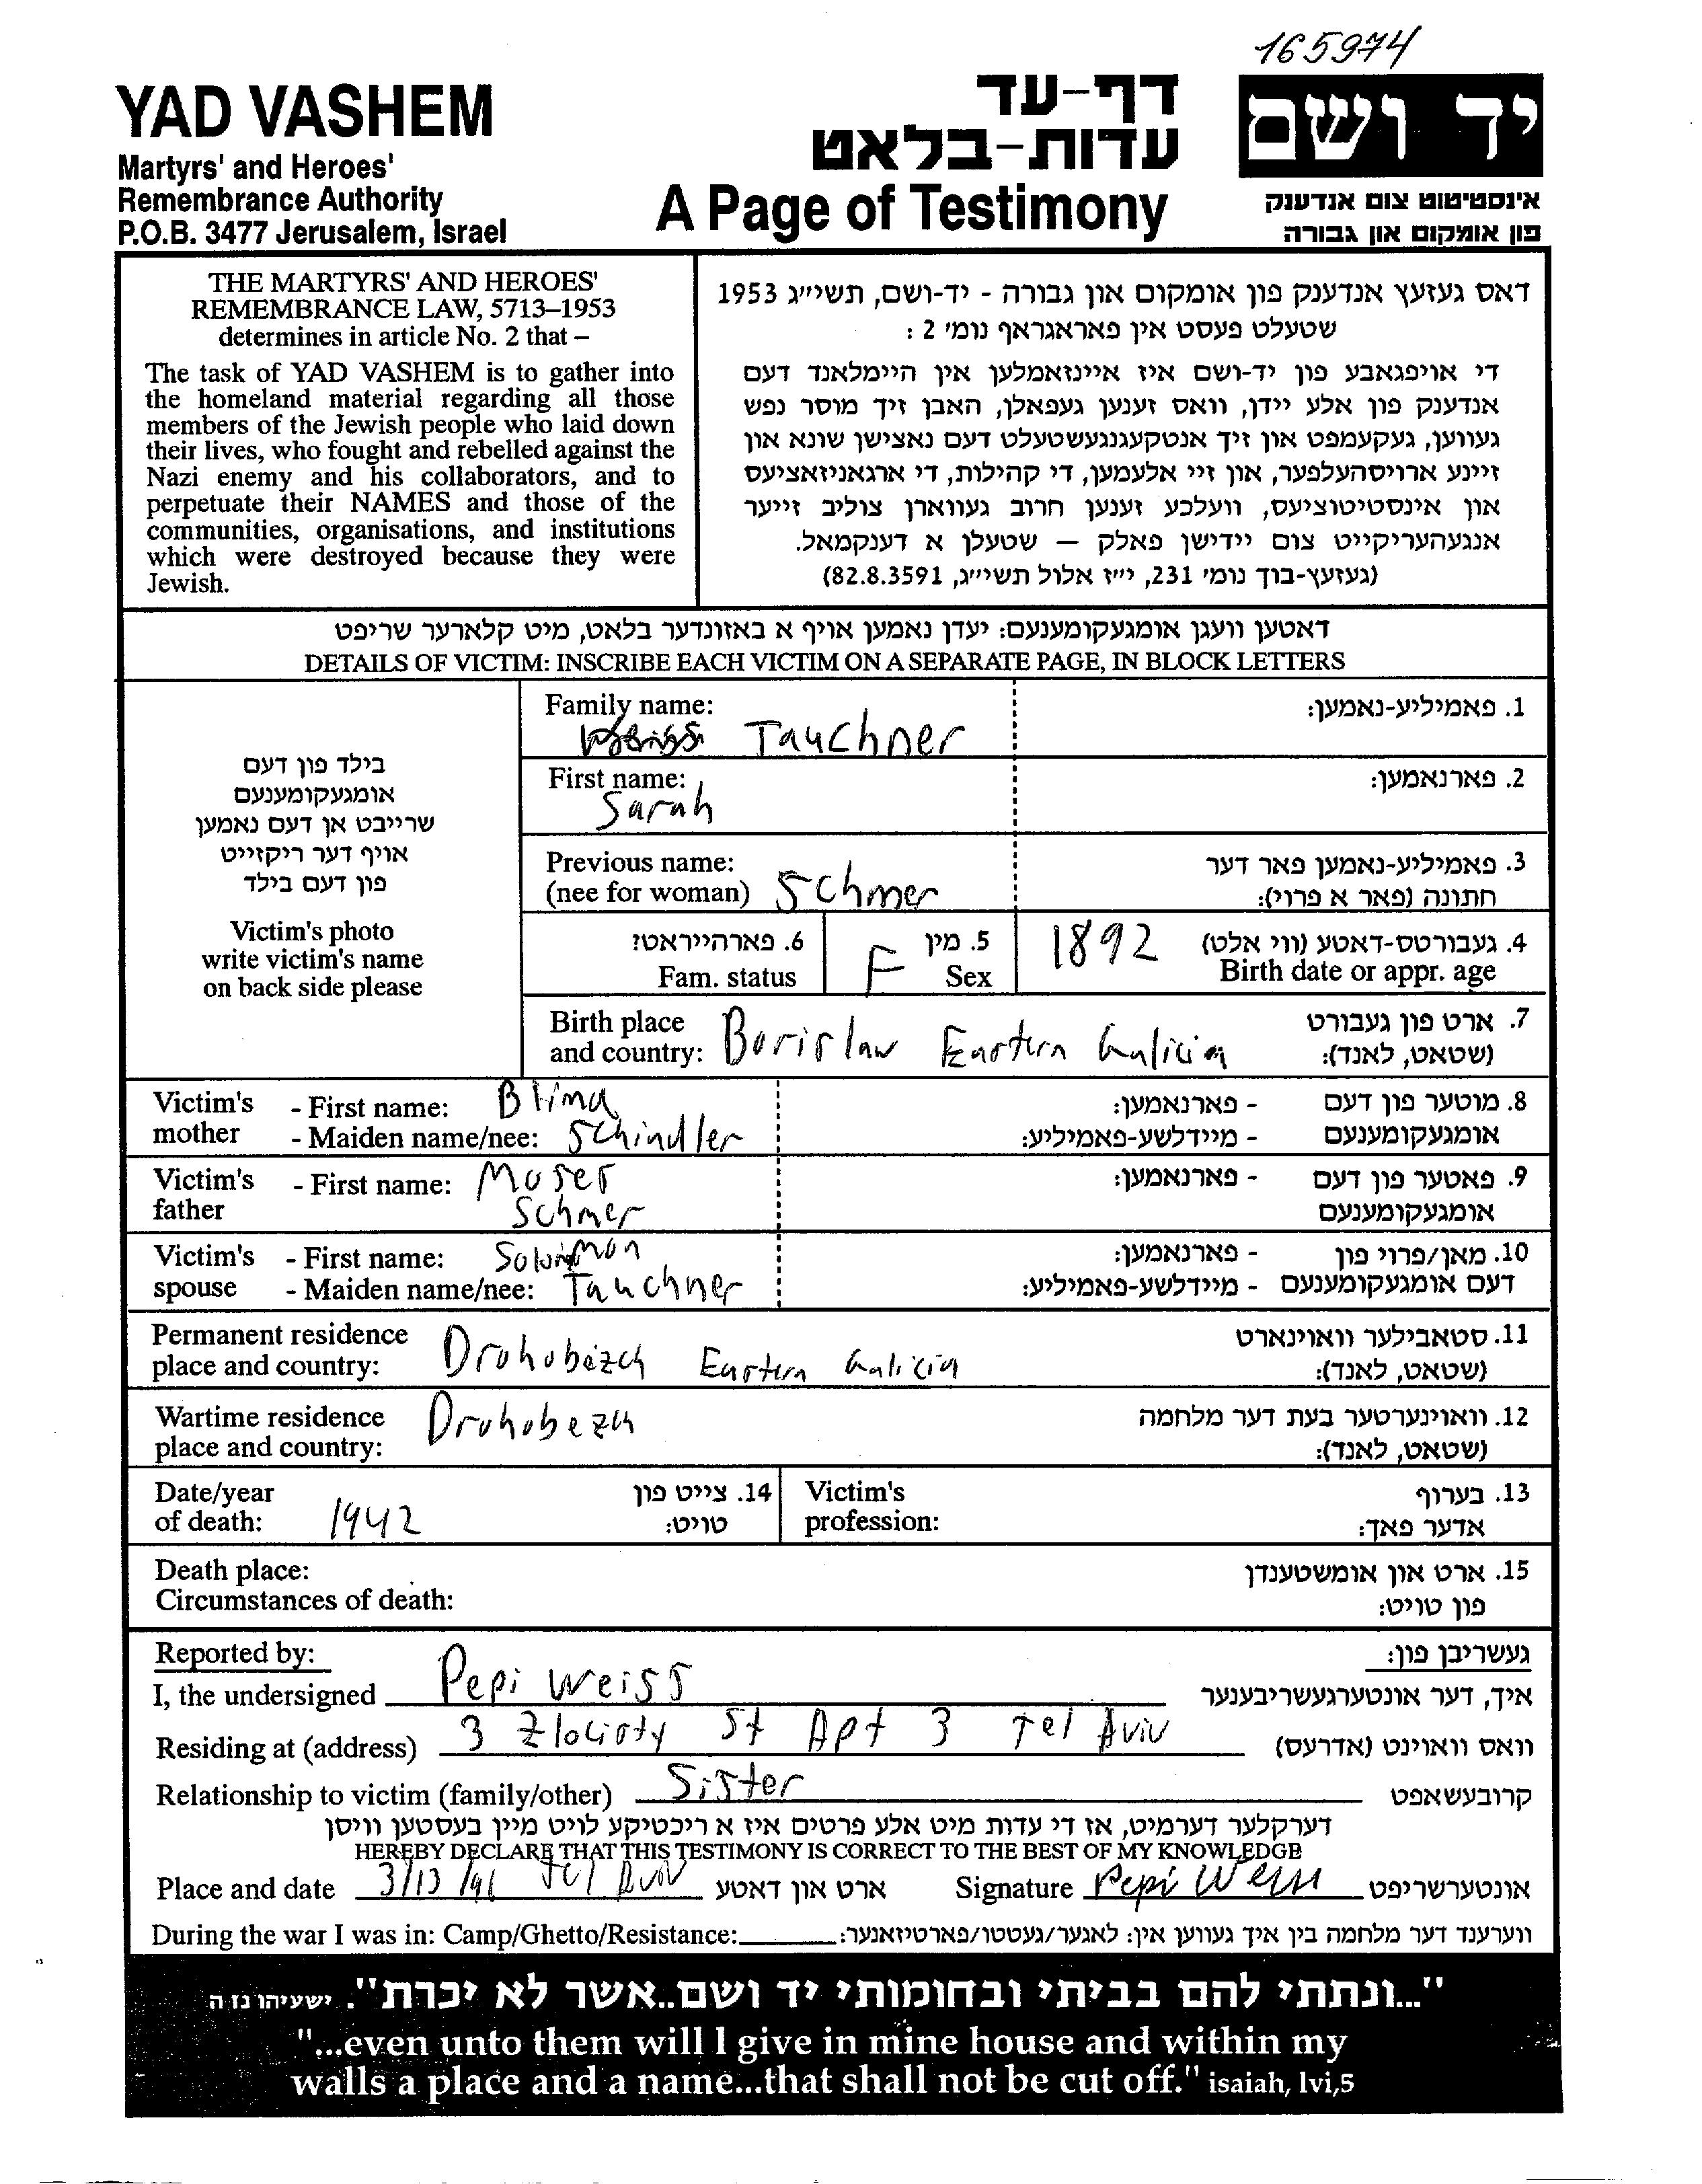 165974
YAD VASHEM
Martyrs' and Heroes'
Remembrance Authority
P.O.B. 3477 Jerusalem, Israel
דף-עד
עדות-בלאט
A Page of Testimony
יד ושם
אינסטיטוט צום אנדענק
פון אומקום און גבורה
THE MARTYRS' AND HEROES'
REMEMBRANCE LAW, 5713–1953
determines in article No. 2 that –
The task of YAD VASHEM is to gather into
the homeland material regarding all those
members of the Jewish people who laid down
their lives, who fought and rebelled against the
Nazi enemy and his collaborators, and to
perpetuate their NAMES and those of the
communities, organisations, and institutions
which were destroyed because they were
Jewish.
דאס געזעץ אנדענק פון אומקום און גבורה - יד-ושם, תשי״ג 1953
שטעלט פעסט אין פאראגראף נומ׳ 2 :
די אויפגאבע פון יד-ושם איז איינזאמלען אין היימלאנד דעם
אנדענק פון אלע יידן, וואס זענען געפאלן, האבן זיך מוסר נפש
געווען, געקעמפט און זיך אנטקעגנגעשטעלט דעם נאצישן שונא און
זיינע ארויסהעלפער, און זיי אלעמען, די קהילות, די ארגאניזאציעס
און אינסטיטוציעס, וועלכע זענען חרוב געווארן צוליב זייער
אנגעהעריקייט צום יידישן פאלק — שטעלן א דענקמאל.
(געזעץ-בוך נומ׳ 231, י״ז אלול תשי״ג, 82.8.3591)
דאטען וועגן אומגעקומענעם: יעדן נאמען אויף א באזונדער בלאט, מיט קלארער שריפט
DETAILS OF VICTIM: INSCRIBE EACH VICTIM ON A SEPARATE PAGE, IN BLOCK LETTERS
בילד פון דעם
אומגעקומענעם
שרייבט אן דעם נאמען
אויף דער ריקזייט
פון דעם בילד
Victim's photo
write victim's name
on back side please
Family name: Tauchner 1. פאמיליע-נאמען:
First name: Sarah 2. פארנאמען:
Previous name: 3. פאמיליע-נאמען פאר דער
(nee for woman) Schmer חתונה (פאר א פרוי):
6. פארהייראט? 5. מין 1892 4. געבורטס-דאטע (ווי אלט)
Fam. status F Sex Birth date or appr. age
Birth place 7. ארט פון געבורט
and country: Borislaw Eastern Galicia (שטאט, לאנד):
Victim's - First name: Blima - פארנאמען: 8. מוטער פון דעם
mother - Maiden name/nee: Schindler - מיידלשע-פאמיליע: אומגעקומענעם
Victim's - First name: Moses - פארנאמען: 9. פאטער פון דעם
father Schmer אומגעקומענעם
Victim's - First name: Solomon - פארנאמען: 10. מאן/פרוי פון
spouse - Maiden name/nee: Tauchner - מיידלשע-פאמיליע: דעם אומגעקומענעם
Permanent residence 11. סטאבילער וואוינארט
place and country: Drohobezch Eastern Galicia (שטאט, לאנד):
Wartime residence Drohobezch 12. וואוינערטער בעת דער מלחמה
place and country: (שטאט, לאנד):
Date/year 14. צייט פון Victim's 13. בערוף
of death: 1942 טויט: profession: אדער פאך:
Death place: 15. ארט און אומשטענדן
Circumstances of death: פון טויט:
Reported by: געשריבן פון:
I, the undersigned Pepi Weiss איך, דער אונטערגעשריבענער
Residing at (address) 3 Zlocisty St Apt 3 Tel Aviv וואס וואוינט (אדרעס)
Relationship to victim (family/other) Sister קרובעשאפט
דערקלער דערמיט, אז די עדות מיט אלע פרטים איז א ריכטיקע לויט מיין בעסטען וויסן
HEREBY DECLARE THAT THIS TESTIMONY IS CORRECT TO THE BEST OF MY KNOWLEDGE
Place and date 3/13/91 Tel Aviv ארט און דאטע Signature Pepi Weiss אונטערשריפט
During the war I was in: Camp/Ghetto/Resistance: ווערענד דער מלחמה בין איך געווען אין: לאגער/געטטו/פארטיזאנער:
"...ונתתי להם בביתי ובחומותי יד ושם..אשר לא יכרת". ישעיהו נז ה
"...even unto them will I give in mine house and within my
walls a place and a name...that shall not be cut off." isaiah, lvi,5